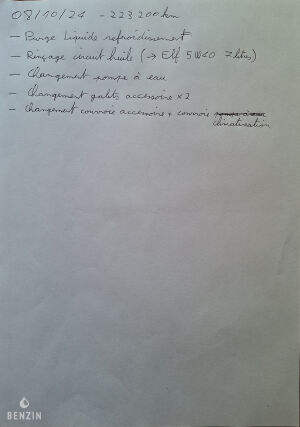 08/10/24 - 223 200 km
- Purge liquide refroidissement
- Rinçage circuit huile (→ Elf 5W40 7 litres)
- Changement pompe à eau
- Changement galets accessoire x2
- Changement courroie accessoire + courroie pompe à eau
climatisation
BENZIN